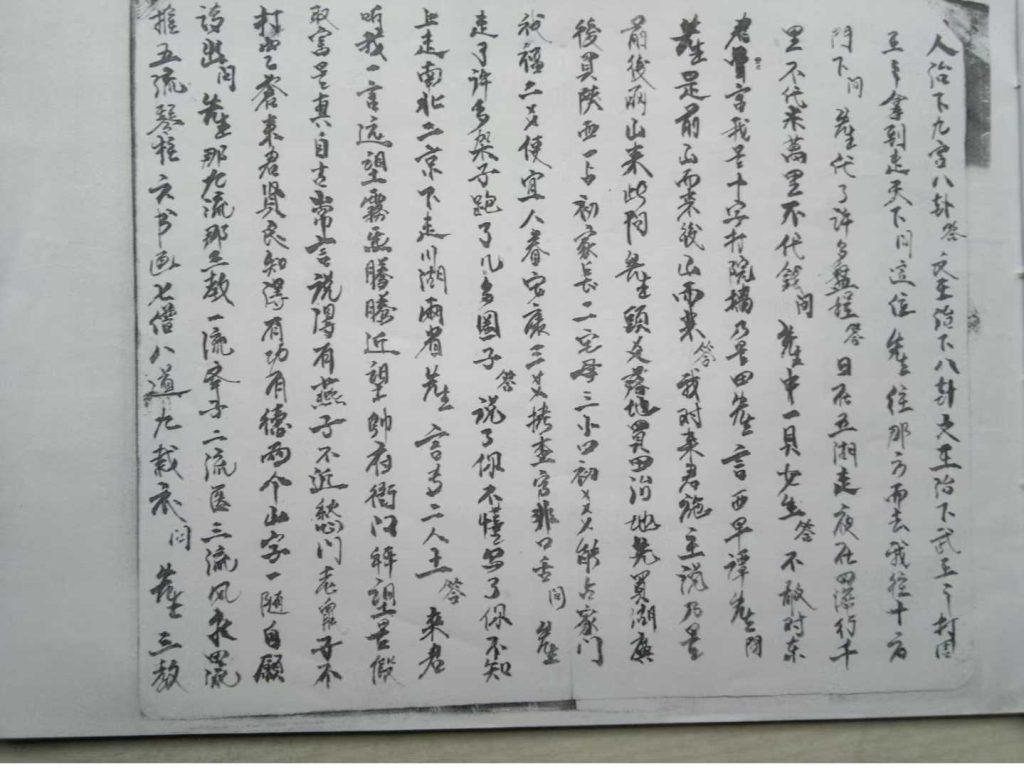 人治下九宫八卦答文王治下八卦文王治下武王二打周
王手拿到走天下问这位先生往那方而去我往十方
门下问先生代了许多盘程答日在五湖走夜在四深行千
里不代米萬里不代钱问先生中一貝女生答不敢对东
君言我是十字打院墙乃是田先生言西早谭先生问
先生是前山而来後山而来答我对来君施主说乃是
前後兩山来此问先生頭爻落地買田治地先買湖廣
後買陕西一占初家长二宅母三小口初爻又占家门
祝福二爻使宜人眷安康三爻搀查官非口舌问先生
走了许多架子跑了几多圈子答说了你不懂写了你不知
上走南北二京下走川湖兩省先生言寺二人土答来君
听我一言远望霧氣騰騰近望帥府衙门祥望是假
取富是真自古常言说得有燕子不近愁门老鼠子不
打空仓东君贤良知得有功有德两个山字一随自願
请出问先生那九流那三教一流举子二流医三流风水四流
推五流琴棋六书画七僧八道九裁衣问先生三教